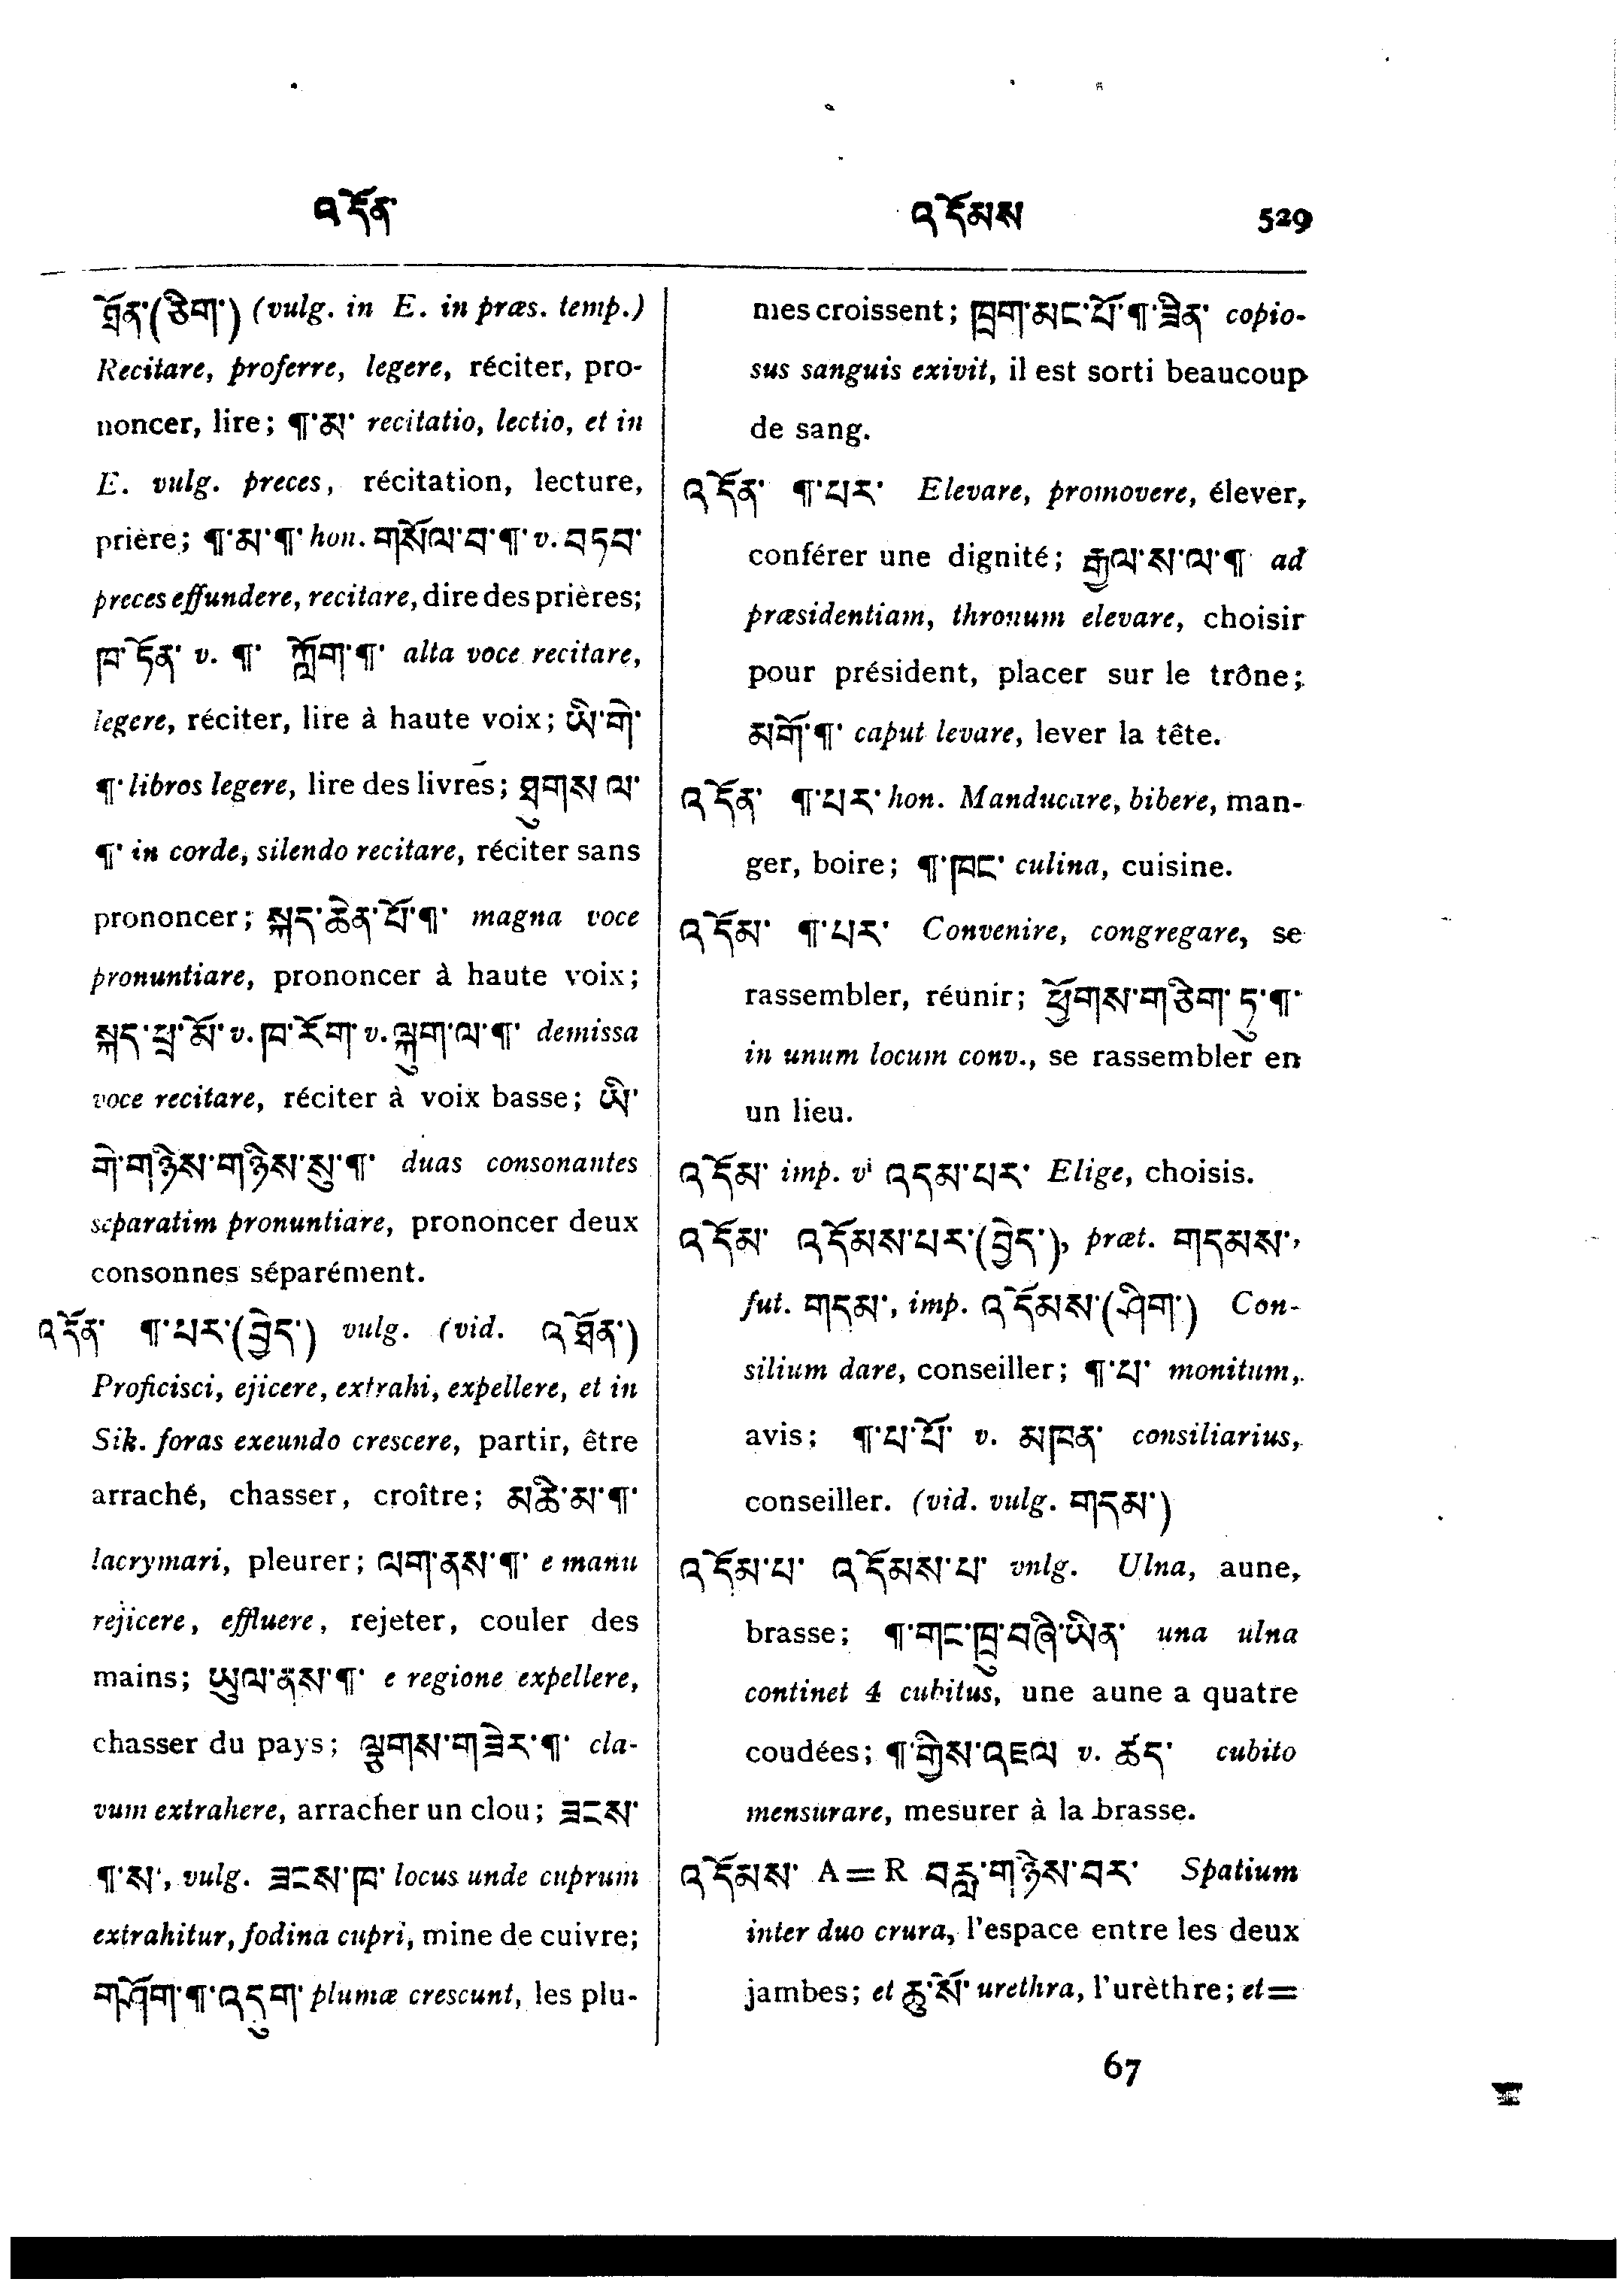 འདོན་
འདོམས 529
ཐོན་(ཅིག་) (vulg. in E. in præs. temp.)
Recitare, proferre, legere, réciter, pro-
noncer, lire; ¶་མ་ recitatio, lectio, et in
E. vulg. preces, récitation, lecture,
prière; ¶་མ་¶་ hon. གསོལ་བ་¶་ v. བཏབ་
preces effundere, recitare, dire des prières;
ཁ་ཏོན་ v. ¶་ ཀློག་¶་ alta voce recitare,
legere, réciter, lire à haute voix; ཡི་གེ་
¶་ libros legere, lire des livres; ཐུགས་ལ་
¶་ in corde, silendo recitare, réciter sans
prononcer; སྐད་ཆེན་པོ་¶་ magna voce
pronuntiare, prononcer à haute voix;
སྐད་ཕྲ་མོ་ v. ཁ་རོག་ v. ལྐུག་ལ་¶་ demissa
voce recitare, réciter à voix basse; ཡི་
གེ་གཉིས་གཉིས་སུ་¶་ duas consonantes
separatim pronuntiare, prononcer deux
consonnes séparément.
འདོན་ ¶་པར་(བྱེད་) vulg. (vid. འཐོན་)
Proficisci, ejicere, extrahi, expellere, et in
Sik. foras exeundo crescere, partir, être
arraché, chasser, croître; མཆི་མ་¶་
lacrymari, pleurer; ལག་ནས་¶་ e manu
rejicere, effluere, rejeter, couler des
mains; ཡུལ་ནས་¶་ e regione expellere,
chasser du pays; ལྕགས་གཟེར་¶་ cla-
vum extrahere, arracher un clou; ཟངས་
¶་ས་, vulg. ཟངས་ཁ་ locus unde cuprum
extrahitur, fodina cupri, mine de cuivre;
གཤོག་¶་འདུག་ plumæ crescunt, les plu-
mes croissent; ཁྲག་མང་པོ་¶་ཟིན་ copio-
sus sanguis exivit, il est sorti beaucoup
de sang.
འདོན་ ¶་པར་ Elevare, promovere, élever,
conférer une dignité; རྒྱལ་ས་ལ་¶ ad
præsidentiam, thronum elevare, choisir
pour président, placer sur le trône;
མགོ་¶་ caput levare, lever la tête.
འདོན་ ¶་པར་ hon. Manducare, bibere, man-
ger, boire; ¶་ཁང་ culina, cuisine.
འདོམ་ ¶་པར་ Convenire, congregare, se
rassembler, réunir; ཕྱོགས་གཅིག་ཏུ་¶་
in unum locum conv., se rassembler en
un lieu.
འདོམ་ imp. vi འདམ་པར་ Elige, choisis.
འདོམ་ འདོམས་པར་(བྱེད་), præt. གདམས་,
fut. གདམ་, imp. འདོམས་(ཤིག་) Con-
silium dare, conseiller; ¶་པ་ monitum,
avis; ¶་པ་པོ་ v. མཁན་ consiliarius,
conseiller. (vid. vulg. གདམ་)
འདོམ་པ་ འདོམས་པ་ vnlg. Ulna, aune,
brasse; ¶་གང་ཁྲུ་བཞི་ཡིན་ una ulna
continet 4 cubitus, une aune a quatre
coudées; ¶་གྱིས་འཇལ v. ཚད་ cubito
mensurare, mesurer à la brasse.
འདོམས་ A = R བརླ་གཉིས་བར་ Spatium
inter duo crura, l'espace entre les deux
jambes; et ཆུ་སོ་ urethra, l'urèthre; et=
67